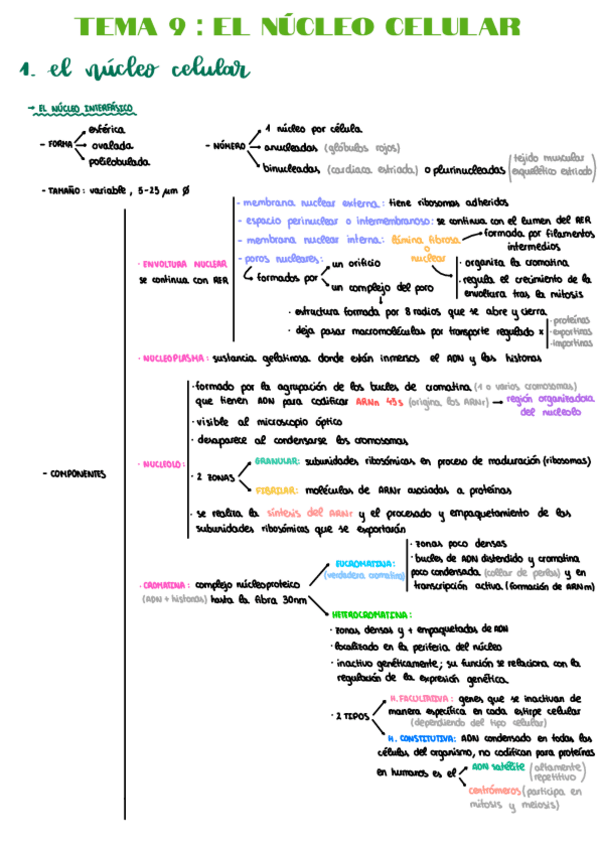 TEMA 9 : EL NÚCLEO CELULAR
1. el núcleo celular
→ EL NÚCLEO INTERFÁSICO
- FORMA
esférica
ovalada
polilobulada
- NÚMERO
1 núcleo por célula
anucleadas (glóbulos rojos)
binucleadas (cardiaca estriada) o plurinucleadas (tejido muscular esquelético estriado)
- TAMAÑO: variable, 5-25 µm Ø
- COMPONENTES
· ENVOLTURA NUCLEAR
se continua con RER
- membrana nuclear externa: tiene ribosomas adheridos
- espacio perinuclear o intermembranoso: se continua con el lumen del RER
- membrana nuclear interna: lámina fibrosa o nuclear
formada por filamentos
intermedios
· organiza la cromatina
· regula el crecimiento de la
envoltura tras la mitosis
- poros nucleares:
formados por
un orificio
un complejo del poro
· estructura formada por 8 radios que se abre y cierra
· deja pasar macromoléculas por transporte regulado x
· proteínas
· exportinas
· importinas
· NUCLEOPLASMA: sustancia gelatinosa donde están inmersos el ADN y las histonas
· NUCLEOLO:
· formado por la agrupación de los bucles de cromatina (1 o varios cromosomas)
que tienen ADN para codificar ARNn 45s (origina los ARNr) → región organizadora
del nucleolo
· visible al microscopio óptico
· desaparece al condensarse los cromosomas
· 2 ZONAS
GRANULAR: subunidades ribosómicas en proceso de maduración (ribosomas)
FIBRILAR: moléculas de ARNr asociadas a proteínas
· se realiza la síntesis del ARNr y el procesado y empaquetamiento de las
subunidades ribosómicas que se exportarán
· CROMATINA: complejo núcleoproteico
(ADN + histonas) hasta la fibra 30nm
EUCROMATINA:
(verdadera cromatina)
· zonas poco densas
· bucles de ADN distendido y cromatina
poco condensada (collar de perlas) y en
transcripción activa (formación de ARNm)
HETEROCROMATINA:
· zonas densas y + empaquetadas de ADN
· localizado en la periferia del núcleo
· inactivo genéticamente; su función se relaciona con la
regulación de la expresión genética.
· 2 TIPOS
H. FACULTATIVA: genes que se inactivan de
manera específica en cada estirpe celular
(dependiendo del tipo celular)
H. CONSTITUTIVA: ADN condensado en todas las
células del organismo, no codifican para proteínas
en humanos es el
ADN satélite (altamente repetitivo)
centrómeros (participa en
mitosis y meiosis)